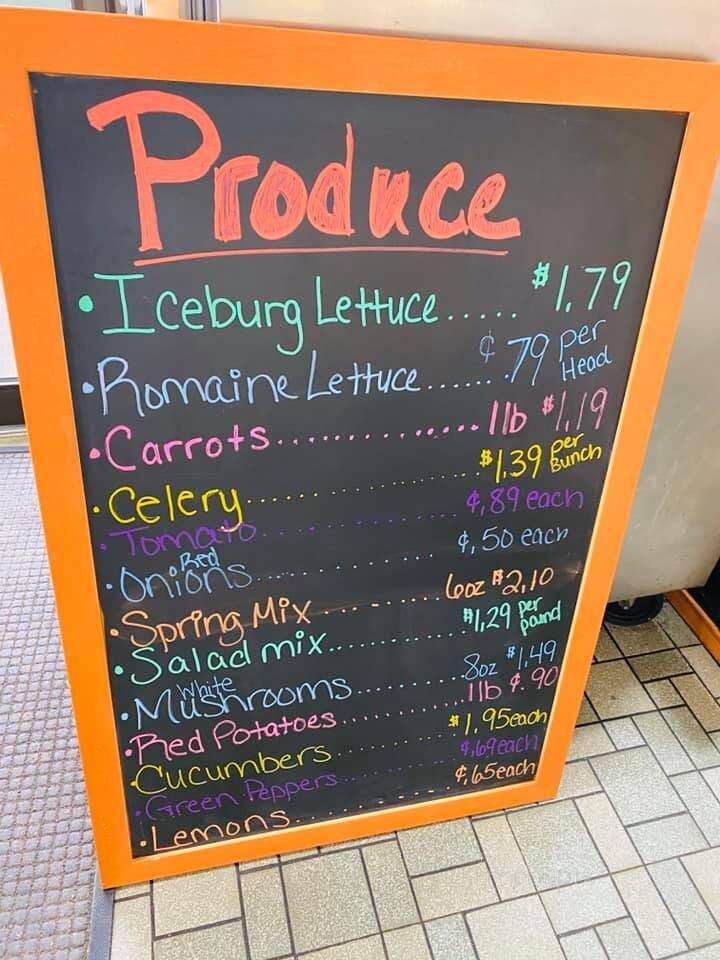 Produce
• Iceburg Lettuce ..... $1.79
• Romaine Lettuce ...... ¢.79 per Head
• Carrots ............... 1lb $1.19
• Celery ............... $1.39 per Bunch
• Tomato ............... ¢.89 each
• Red Onions ............... ¢.50 each
• Spring Mix ......... 6oz $2.10
• Salad mix ............ $1.29 per pound
• White Mushrooms ......... 8oz $1.49
• Red Potatoes ............ 1lb ¢.90
• Cucumbers ............ $1.95 each
• Green Peppers ............ ¢.69 each
• Lemons ............... ¢.65 each